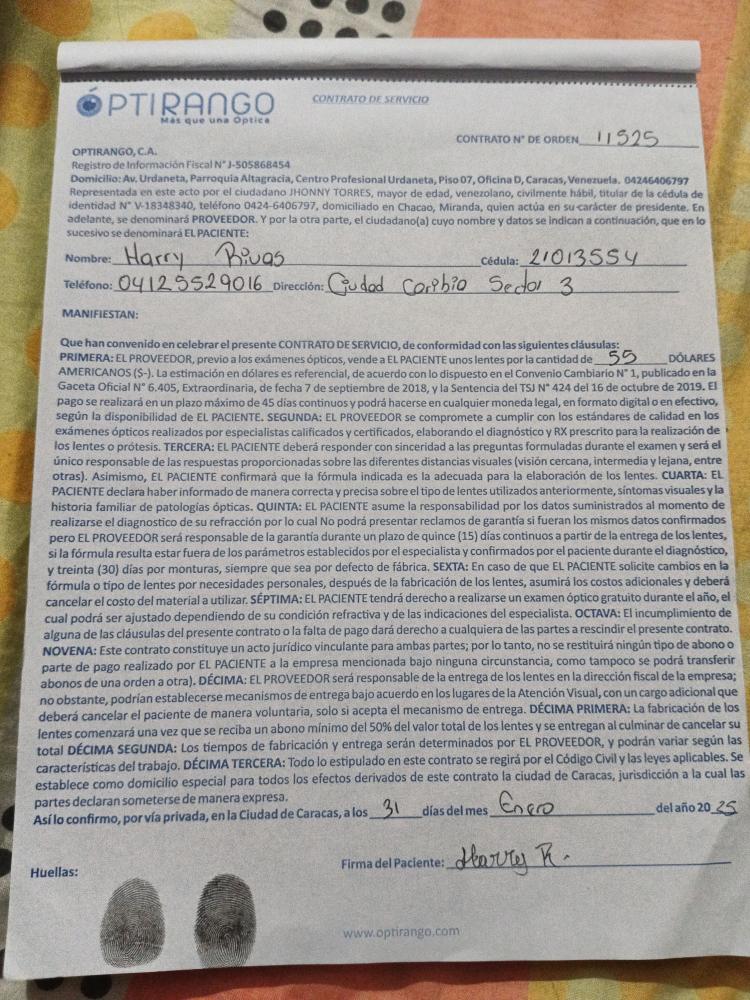 OPTIRANGO
Más que una Óptica
CONTRATO DE SERVICIO
CONTRATO N° DE ORDEN 11525
OPTIRANGO, C.A.
Registro de Información Fiscal N° J-505868454
Domicilio: Av. Urdaneta, Parroquia Altagracia, Centro Profesional Urdaneta, Piso 07, Oficina D, Caracas, Venezuela. 04246406797
Representada en este acto por el ciudadano JHONNY TORRES, mayor de edad, venezolano, civilmente hábil, titular de la cédula de
identidad N° V-18348340, teléfono 0424-6406797, domiciliado en Chacao, Miranda, quien actúa en su carácter de presidente. En
adelante, se denominará PROVEEDOR. Y por la otra parte, el ciudadano(a) cuyo nombre y datos se indican a continuación, que en lo
sucesivo se denominará EL PACIENTE:
Nombre: Harry Rivas Cédula: 21013554
Teléfono: 04125529016 Dirección: Ciudad Caribia Sector 3
MANIFIESTAN:
Que han convenido en celebrar el presente CONTRATO DE SERVICIO, de conformidad con las siguientes cláusulas:
PRIMERA: EL PROVEEDOR, previo a los exámenes ópticos, vende a EL PACIENTE unos lentes por la cantidad de 55 DÓLARES
AMERICANOS (S-). La estimación en dólares es referencial, de acuerdo con lo dispuesto en el Convenio Cambiario N° 1, publicado en la
Gaceta Oficial N° 6.405, Extraordinaria, de fecha 7 de septiembre de 2018, y la Sentencia del TSJ N° 424 del 16 de octubre de 2019. El
pago se realizará en un plazo máximo de 45 días continuos y podrá hacerse en cualquier moneda legal, en formato digital o en efectivo,
según la disponibilidad de EL PACIENTE. SEGUNDA: EL PROVEEDOR se compromete a cumplir con los estándares de calidad en los
exámenes ópticos realizados por especialistas calificados y certificados, elaborando el diagnóstico y RX prescrito para la realización de
los lentes o prótesis. TERCERA: EL PACIENTE deberá responder con sinceridad a las preguntas formuladas durante el examen y será el
único responsable de las respuestas proporcionadas sobre las diferentes distancias visuales (visión cercana, intermedia y lejana, entre
otras). Asimismo, EL PACIENTE confirmará que la fórmula indicada es la adecuada para la elaboración de los lentes. CUARTA: EL
PACIENTE declara haber informado de manera correcta y precisa sobre el tipo de lentes utilizados anteriormente, síntomas visuales y la
historia familiar de patologías ópticas. QUINTA: EL PACIENTE asume la responsabilidad por los datos suministrados al momento de
realizarse el diagnostico de su refracción por lo cual No podrá presentar reclamos de garantía si fueran los mismos datos confirmados
pero EL PROVEEDOR será responsable de la garantía durante un plazo de quince (15) días continuos a partir de la entrega de los lentes,
si la fórmula resulta estar fuera de los parámetros establecidos por el especialista y confirmados por el paciente durante el diagnóstico,
y treinta (30) días por monturas, siempre que sea por defecto de fábrica. SEXTA: En caso de que EL PACIENTE solicite cambios en la
fórmula o tipo de lentes por necesidades personales, después de la fabricación de los lentes, asumirá los costos adicionales y deberá
cancelar el costo del material a utilizar. SÉPTIMA: EL PACIENTE tendrá derecho a realizarse un examen óptico gratuito durante el año, el
cual podrá ser ajustado dependiendo de su condición refractiva y de las indicaciones del especialista. OCTAVA: El incumplimiento de
alguna de las cláusulas del presente contrato o la falta de pago dará derecho a cualquiera de las partes a rescindir el presente contrato.
NOVENA: Este contrato constituye un acto jurídico vinculante para ambas partes; por lo tanto, no se restituirá ningún tipo de abono o
parte de pago realizado por EL PACIENTE a la empresa mencionada bajo ninguna circunstancia, como tampoco se podrá transferir
abonos de una orden a otra). DÉCIMA: EL PROVEEDOR será responsable de la entrega de los lentes en la dirección fiscal de la empresa;
no obstante, podrían establecerse mecanismos de entrega bajo acuerdo en los lugares de la Atención Visual, con un cargo adicional que
deberá cancelar el paciente de manera voluntaria, solo si acepta el mecanismo de entrega. DÉCIMA PRIMERA: La fabricación de los
lentes comenzará una vez que se reciba un abono mínimo del 50% del valor total de los lentes y se entregan al culminar de cancelar su
total DÉCIMA SEGUNDA: Los tiempos de fabricación y entrega serán determinados por EL PROVEEDOR, y podrán variar según las
características del trabajo. DÉCIMA TERCERA: Todo lo estipulado en este contrato se regirá por el Código Civil y las leyes aplicables. Se
establece como domicilio especial para todos los efectos derivados de este contrato la ciudad de Caracas, jurisdicción a la cual las
partes declaran someterse de manera expresa.
Así lo confirmo, por vía privada, en la Ciudad de Caracas, a los 31 días del mes Enero del año 2025
Firma del Paciente: Harry R.
Huellas:
www.optirango.com